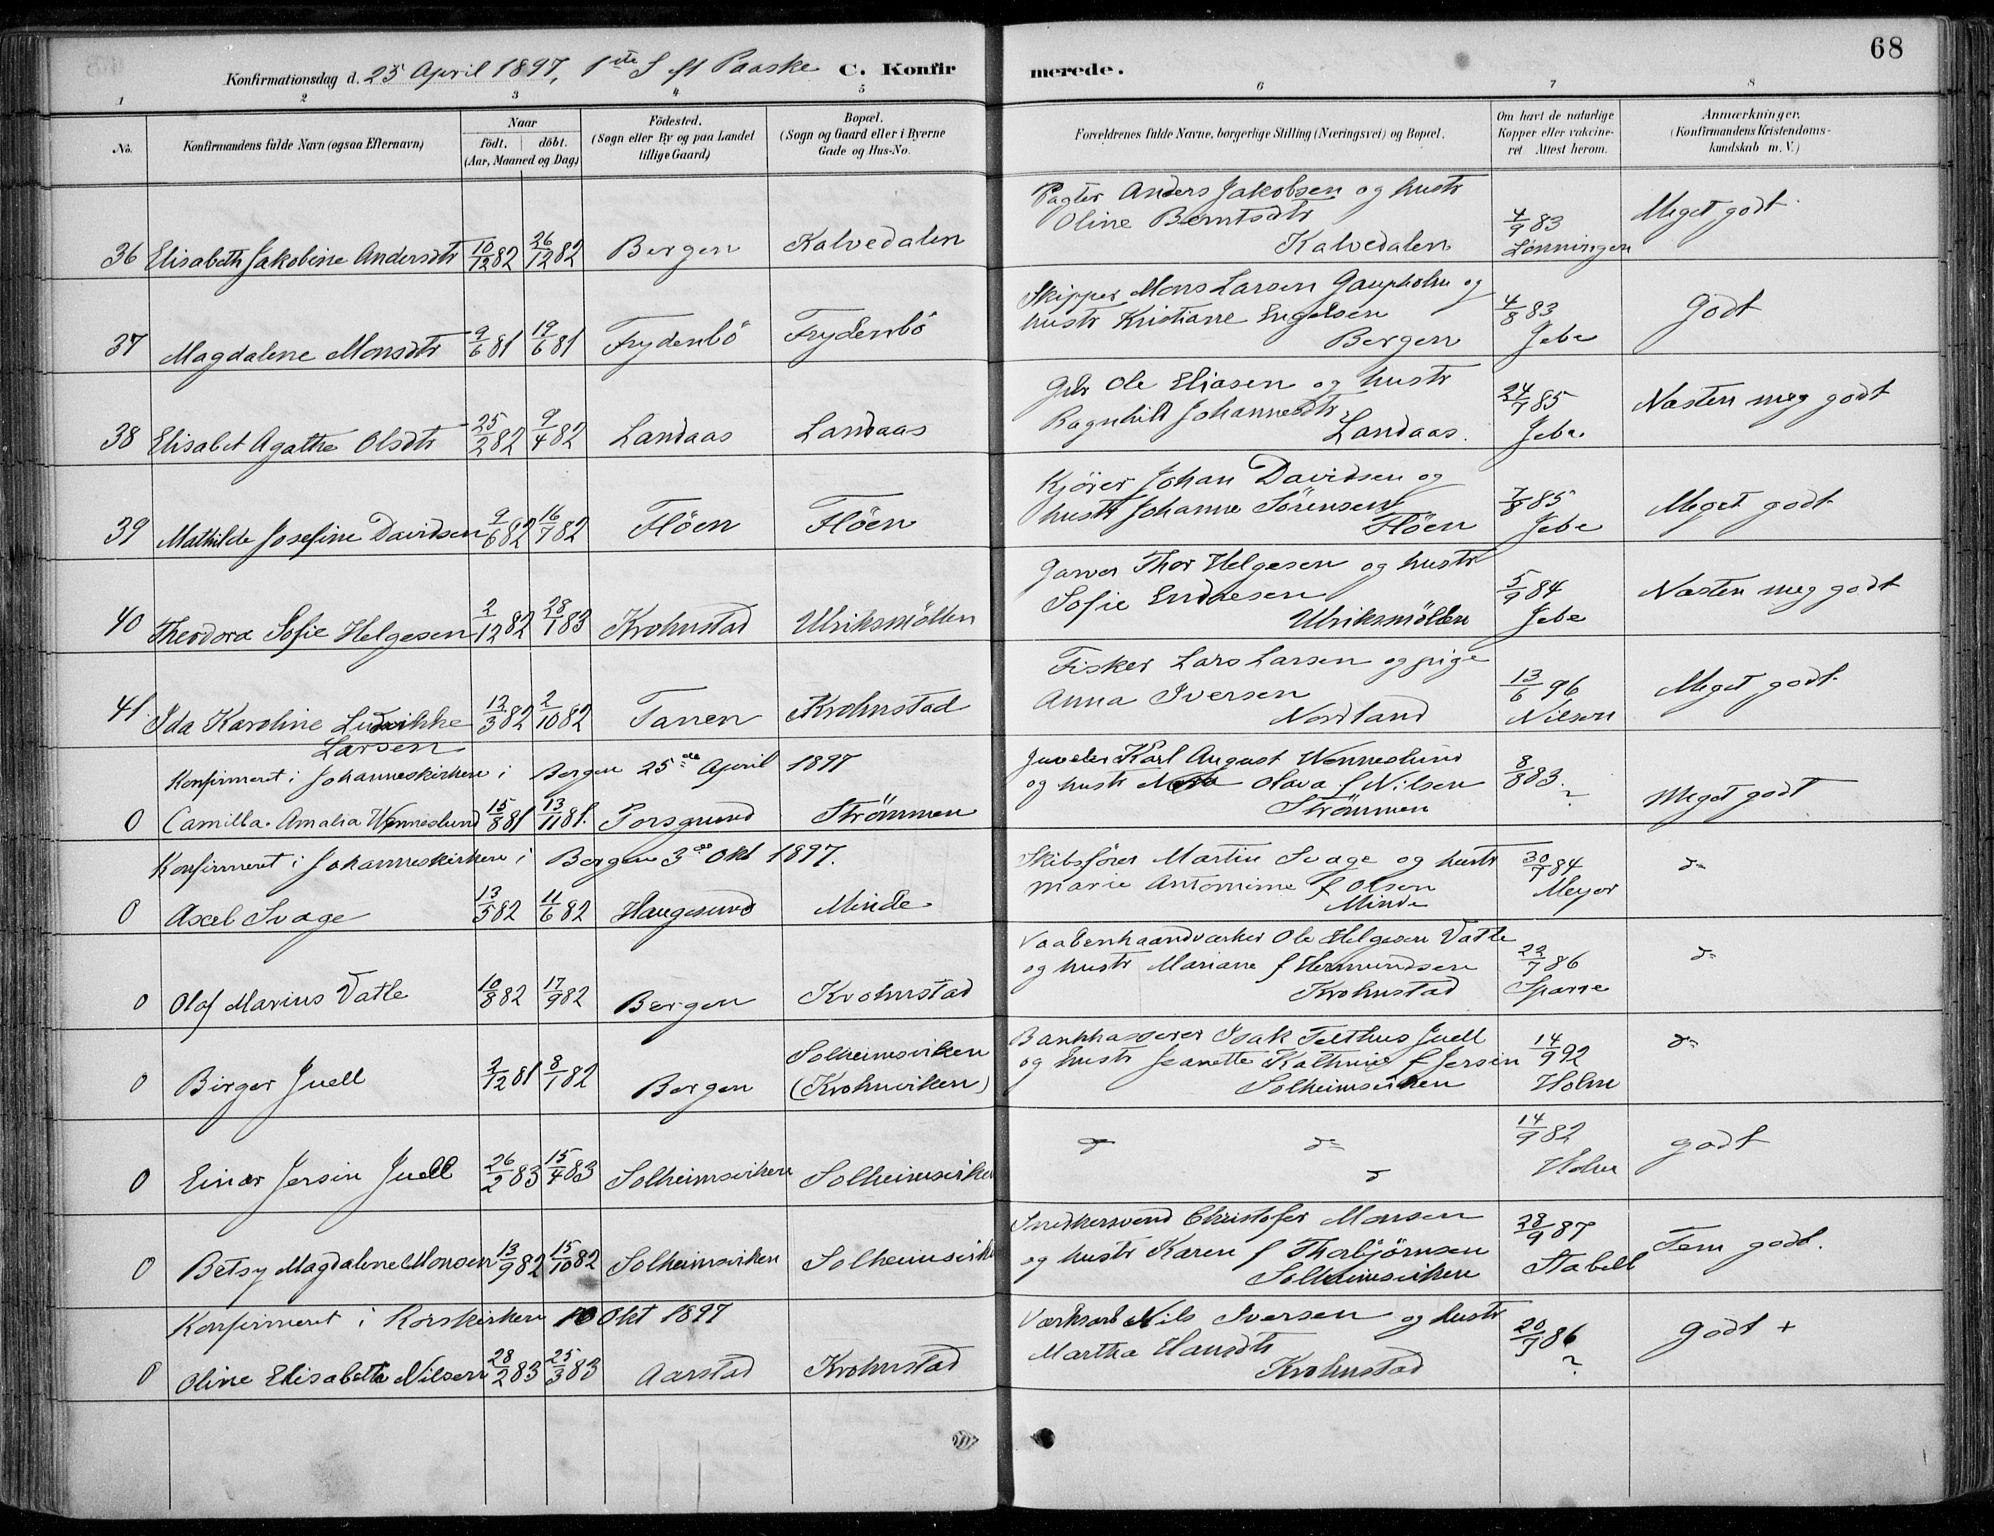 68
Konfirmationsdag d. 25 April 1897, 1ste S. eft Paaske C. Konfir merede.
1 2 3 4 5 6 7 8
No. Konfirmandens fulde Navn (ogsaa Efternavn) Naar födt. döbt. (Aar, Maaned og Dag) Födested. (Sogn eller By og paa Landet tillige Gaard) Bopæl. (Sogn og Gaard eller i Byerne Gade og Hus-No. Forældrenes fulde Navne, borgerlige Stilling (Næringsvei) og Bopæl. Om havt de naturlige Kopper eller vakcineret Attest herom. Anmærkninger. (Konfirmandens Kristendomskundskab m. V.)
Anders Jakobsen og hustr
Oline Berntsdtr
36 Elisabeth Jakobine Andersdtr 10/12 82 26/12 82 Bergen Kalvedalen Kalvedalen 4/9 83 Lønningen Meget godt.
Skipper Mons Larsen Gaupholm og
hustr Kristiane Engelsen
37 Magdalene Monsdtr 9/6 81 19/6 81 Frydenbö Frydenbö Bergen 4/8 83 Jebe Godt
Ole Eliasen og hustr
Ragnhild Johannesdtr
38 Elisabet Agathe Olsdtr 25/2 82 9/4 82 Landaas Landaas Landaas. 24/7 85 Jebe Næsten meg godt
Kjörer Johan Davidsen og
hustr Johanne Sörensen
39 Mathilde Josefine Davidsen 9/6 82 16/7 82 Flöen Flöen Flöen 7/8 85 Jebe Meget godt
Garver Thor Helgesen og hustr
Sofie Endresen
40 Theodora Sofie Helgesen 2/12 82 28/1 83 Krohnstad Ulriksmöllen Ulriksmöllen 5/9 84 Jebe Næsten meg godt
Fisker Lars Larsen og pige
Anna Iversen
41. Ida Karoline Ludvikke Larsen 13/3 82 2/10 82 Tanen Krohnstad Nordland 13/6 96 Nilsen Meget godt
Konfirmeret i Johanneskirken i Bergen 25de April 1897
Juveler Karl August Wenneslund
og hustr Olava f Nilsen
0 Camilla Amalia Wenneslund 15/8 81 13/11 81. Porsgrund Strömmen Strömmen 8/8 83. ? Meget godt
Konfirmeret i Johanneskirken i Bergen 3de Okt 1897.
Skibsförer Martin Svage og hustr
Marie Antomine f Olsen
0 Axel Svage 13/5 82 11/6 82 Haugesund Minde Minde 30/7 84 Meyer do
Vaabenhaandværker Ole Helgesen Vatle
og hustr Mariane f Hermundsen
0 Olaf Marius Vatle 10/8 82 17/9 82 Bergen Krohnstad Krohnstad 22/7 86 Sparre do
Bankkasserer Isak Telthus Juell
og hustr Jeanette Kathrine f Jersin
0 Birger Juell 2/12 81 8/1 82 Bergen Solheimsviken (Krohnviken) Solheimsviken 14/9 92 Holm do
0 Einar Jersin Juell 26/2 83 15/4 83 Solheimsviken Solheimsviken do do do 14/9 82 Holm godt
Snedkersvend Christofer Monsen
og hustr Karen f Thorbjørnsen
0 Betsy Magdalene Monsen 13/9 82 15/10 82 Solheimsviken Solheimsviken Solheimsviken 28/9 87 Stabell Tem godt.
Konfirmeret i Korskirken 10 Okt 1897
Værksarb Nils Iversen og hustr
Martha Hansdtr
0 Oline Elisabeth Nilsen 28/2 83 25/3 83 Aarstad Krohnstad Krohnstad 20/7 86 ? Godt +